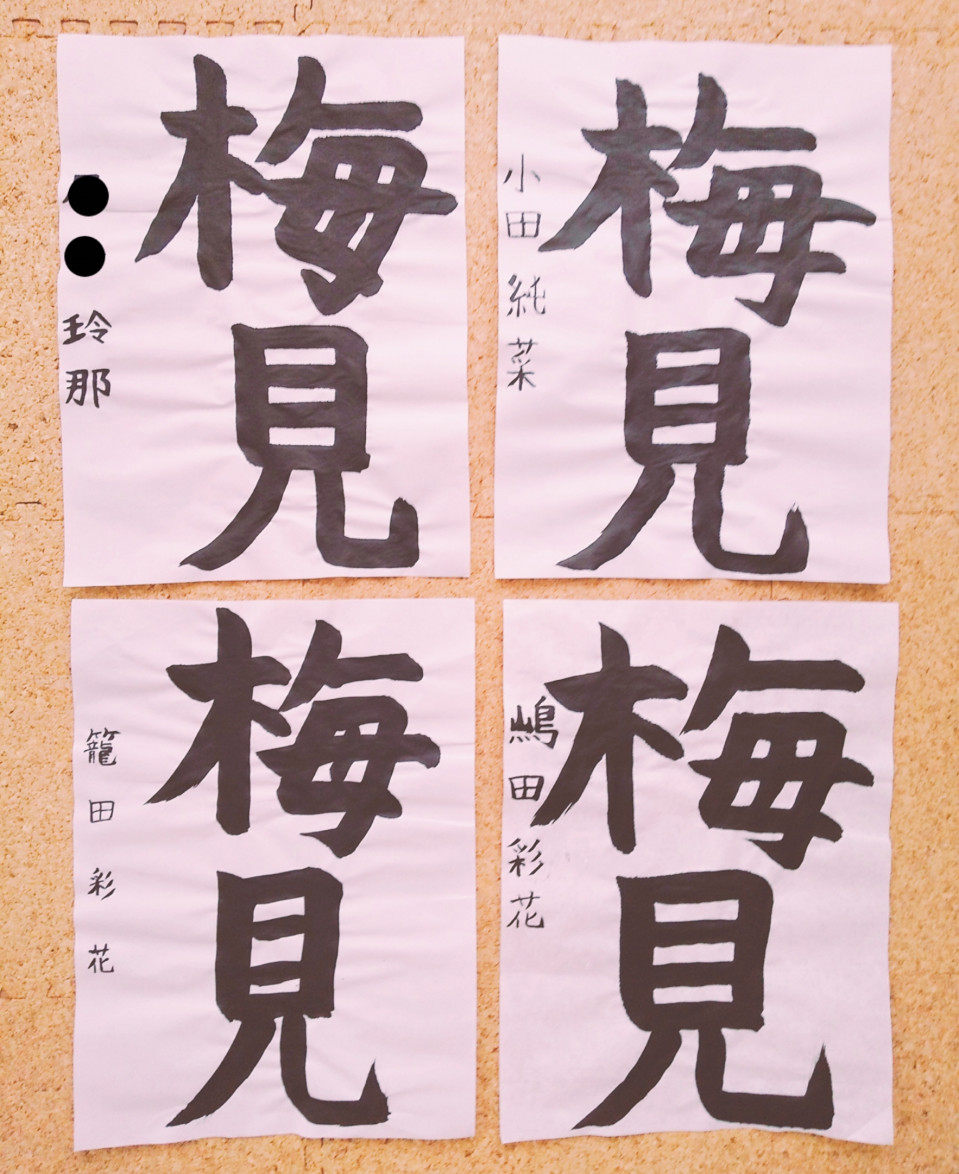 梅見
玲那
梅見
小田純菜
梅見
籠田彩花
梅見
嶋田彩花